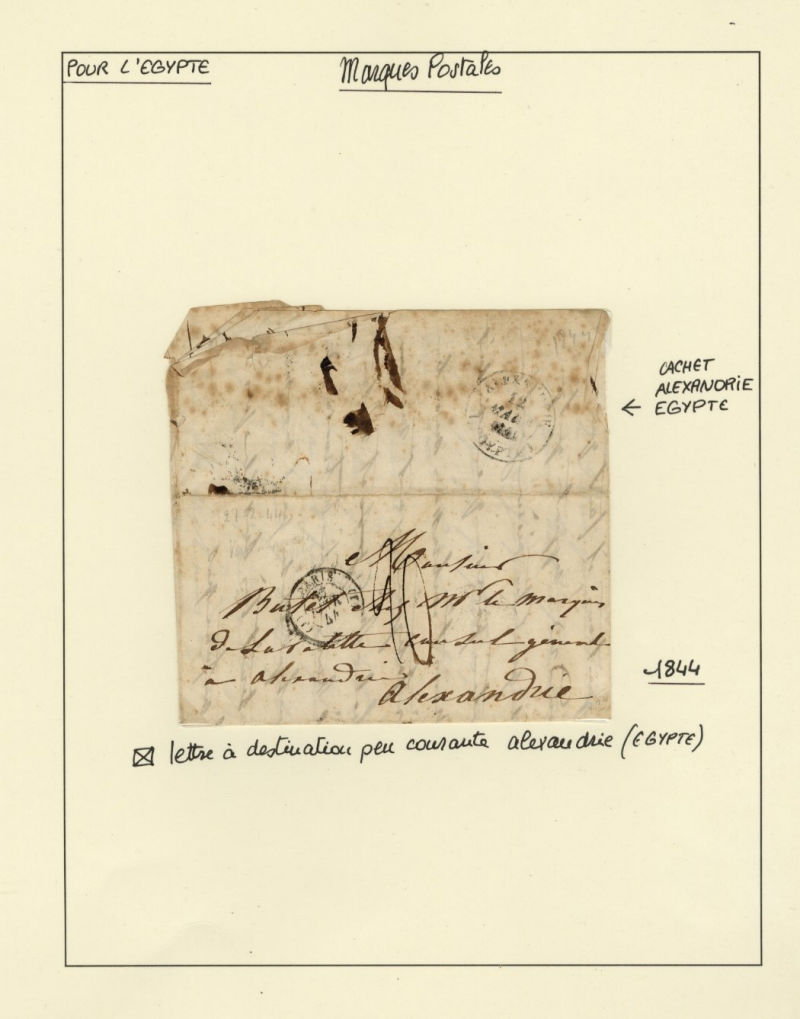 POUR L'EGYPTE
Marques Postales
ALEXANDRIE
12
MAR
CACHET
ALEXANDRIE
← EGYPTE
1844
27-2-44
PARIS
44
Monsieur
Mr le Marquis
de Lavalette consul général
à alexandrie
Alexandrie
1844
lettre à destination peu courante alexandrie (EGYPTE)